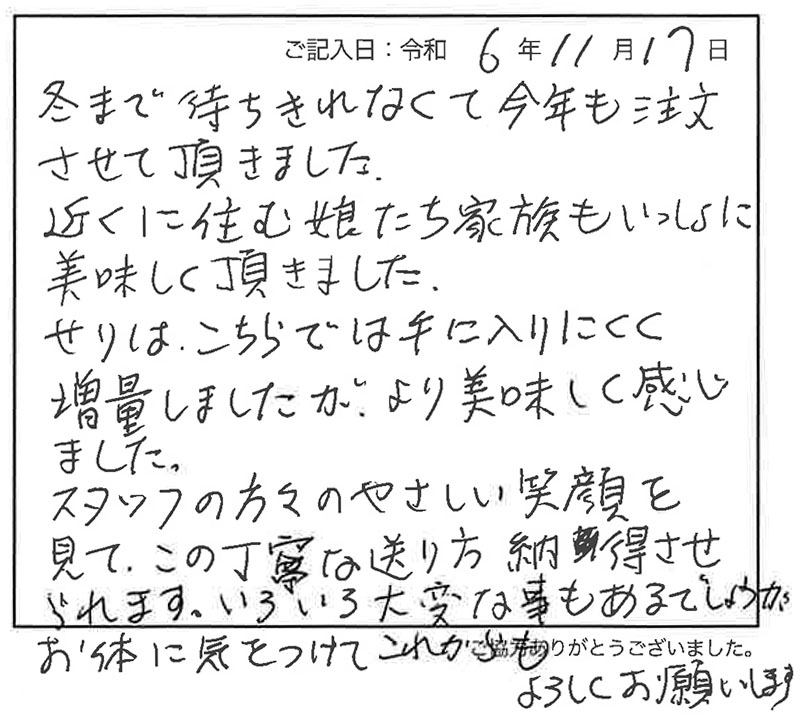 ご記入日：令和 6 年 11 月 17 日
冬まで待ちきれなくて今年も注文
させて頂きました.
近くに住む娘たち家族もいっしょに
美味しく頂きました.
せりは、こちらでは手に入りにくく
増量しましたが、より美味しく感じ
ました。
スタッフの方々のやさしい笑顔を
見て、この丁寧な送り方 納得させ
られます。いろいろ大変な事もあるでしょうが
お体に気をつけてこれからも
ご協力ありがとうございました。
よろしくお願いします